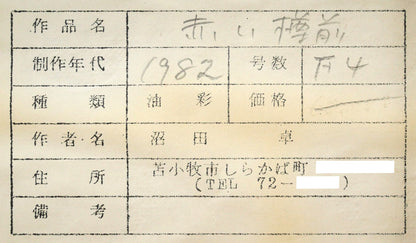 作品名 赤い樽前
制作年代 1982 号数 F4
種類 油彩 価格 —
作者名 沼田 卓
住所 苫小牧市しらかば町
(TEL 72- )
備考